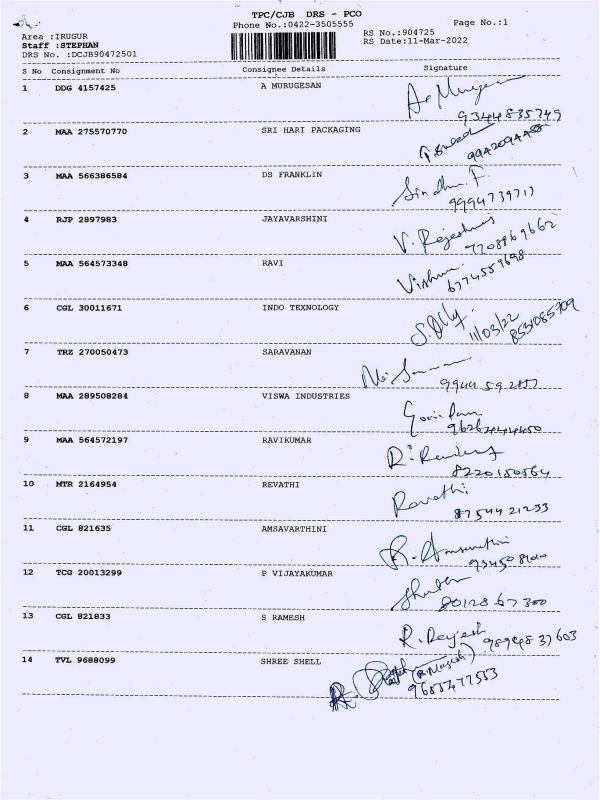 TPC/CJB DRS - PCO
Phone No.:0422-3505555
Page No.:1
Area :IRUGUR
Staff :STEPHAN
DRS No. :DCJB90472501
RS No.:904725
RS Date:11-Mar-2022
S No Consignment No Consignee Details Signature
1 DDG 4157425 A MURUGESAN
9344835749
2 MAA 275570770 SRI HARI PACKAGING
3 MAA 566386584 DS FRANKLIN Sindhu. F
9994739717
4 RJP 2897983 JAYAVARSHINI
7708869662
5 MAA 564573348 RAVI
6 CGL 30011671 INDO TEXNOLOGY
11/03/22
8531085709
7 TRZ 270050473 SARAVANAN
8 MAA 289508284 VISWA INDUSTRIES
9 MAA 564572197 RAVIKUMAR
8220150564
10 MTR 2164954 REVATHI Revathi
8754421233
11 CGL 821635 AMSAVARTHINI
12 TCG 20013299 P VIJAYAKUMAR
8012867300
13 CGL 821833 S RAMESH R. Rajesh
9894837603
14 TVL 9688099 SHREE SHELL